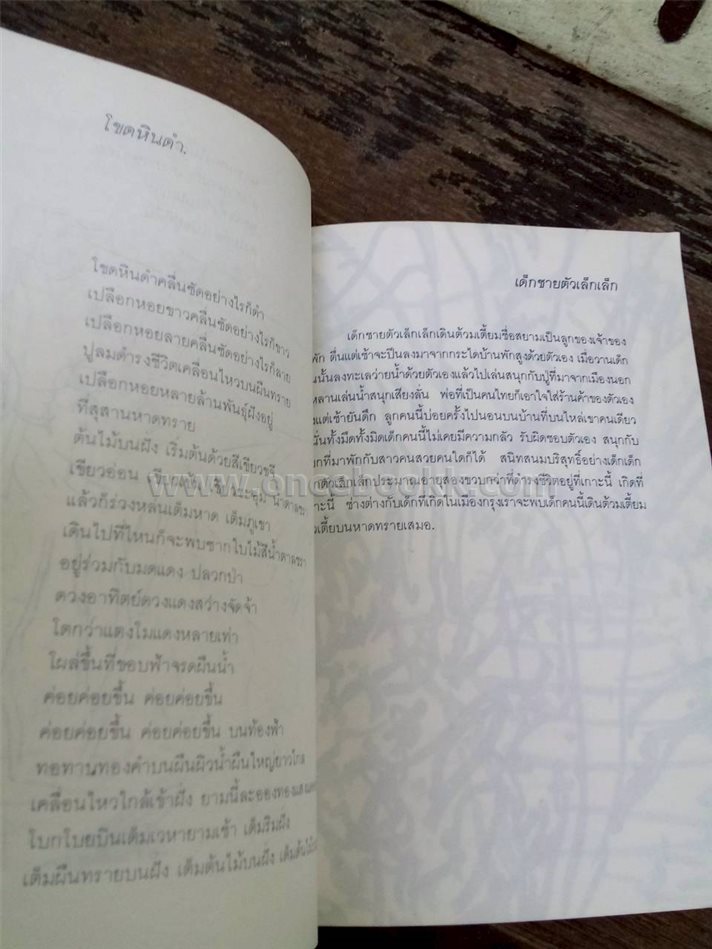 โขดหินดำ.
โขดหินดำคลื่นซัดอย่างไรก็ดำ
เปลือกหอยขาวคลื่นซัดอย่างไรก็ขาว
เปลือกหอยลายคลื่นซัดอย่างไรก็ลาย
ปูลมดำรงชีวิตเคลื่อนไหวบนผืนทราย
เปลือกหอยหลายล้านพันธุ์ฝังอยู่
ที่สุสานหาดทราย
ต้นไม้บนฝั่ง เริ่มต้นด้วยสีเขียวขจี
เขียวอ่อน เขียวเข้ม
แล้วก็ร่วงหล่นเต็มหาด เต็มภูเขา
เดินไปที่ไหนก็จะพบซากใบไม้สีน้ำตาล
อยู่ร่วมกับมดแดง ปลวกป่า
ดวงอาทิตย์ดวงแดงสว่างจัดจ้า
โตกว่าแตงโมแดงหลายเท่า
โผล่ขึ้นที่ขอบฟ้าจรดผืนน้ำ
ค่อยค่อยขึ้น ค่อยค่อยขึ้น
ค่อยค่อยขึ้น ค่อยค่อยขึ้น บนท้องฟ้า
ทอทาบทองคำบนผืนผิวน้ำผืนใหญ่ยาวไกล
เคลื่อนไหวใกล้เข้าฝั่ง ยามนี้ละอองทอง
โบกโบยบินเต็มเวหายามเช้า เต็มริมฝั่ง
เต็มผืนทรายบนฝั่ง เต็มต้นไม้บนฝั่ง
เด็กชายตัวเล็กเล็ก
เด็กชายตัวเล็กเล็กเดินต้วมเตี้ยมชื่อสยามเป็นลูกของเจ้าของ
พัก ตื่นแต่เช้าจะปีนลงมาจากกระไดบ้านพักสูงด้วยตัวเอง เมื่อวานเด็ก
นั้นลงทะเลว่ายน้ำด้วยตัวเองแล้วไปเล่นสนุกกับปู่ที่มาจากเมืองนอก
หลานเล่นน้ำสนุกเสียงลั่น พ่อที่เป็นคนไทยก็เอาใจใส่ร้านค้าของตัวเอง
แต่เช้ายันดึก ลูกคนนี้บ่อยครั้งไปนอนบนบ้านที่บนไหล่เขาคนเดียว
นั่นทั้งมืดทั้งมิดเด็กคนนี้ไม่เคยมีความกลัว รับผิดชอบตัวเอง สนุกกับ
ที่มาพักกับสาวคนสวยคนใดก็ได้ สนิทสนมบริสุทธิ์อย่างเด็กเด็ก
ตัวเล็กเล็กประมาณอายุสองขวบกว่าที่ดำรงชีวิตอยู่ที่เกาะนี้
เกาะนี้ ช่างต่างกับเด็กที่เกิดในเมืองกรุงเราจะพบเด็กคนนี้เดินต้วมเตี้ยม
เตี้ยบนหาดทรายเสมอ.
www.oncebookk.com